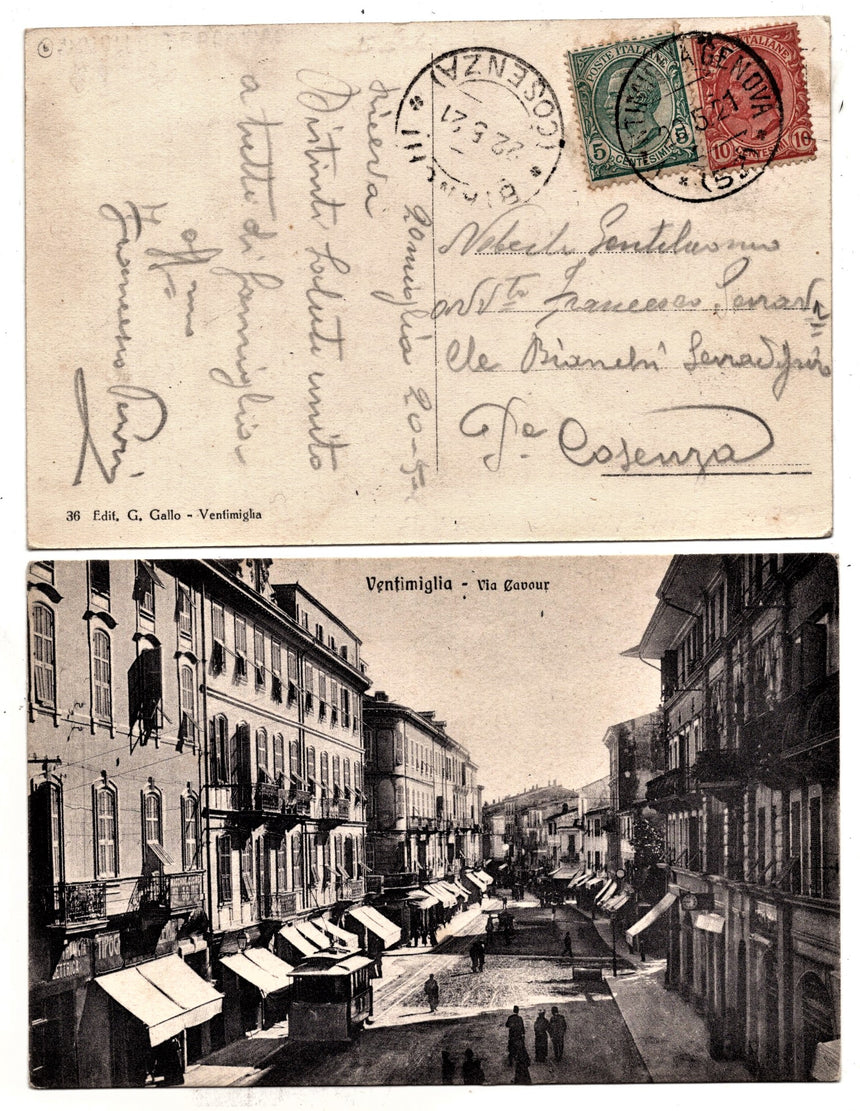 POSTE ITALIANE
5 CENTESIMI 5
ITALIANE
10 CENTESIMI 10
VENTIMIGLIA GENOVA
BIANCHI * (COSENZA) *
22.5.21
20miglia 20-5-
Distinti Saluti unito
a tutti di famiglia
aff.mo
Francesco
Nobile Gentiluomo
Francesco Serra
de Bianchi Serra
Cosenza
36 Edit. G. Gallo - Ventimiglia
Ventimiglia - Via Cavour